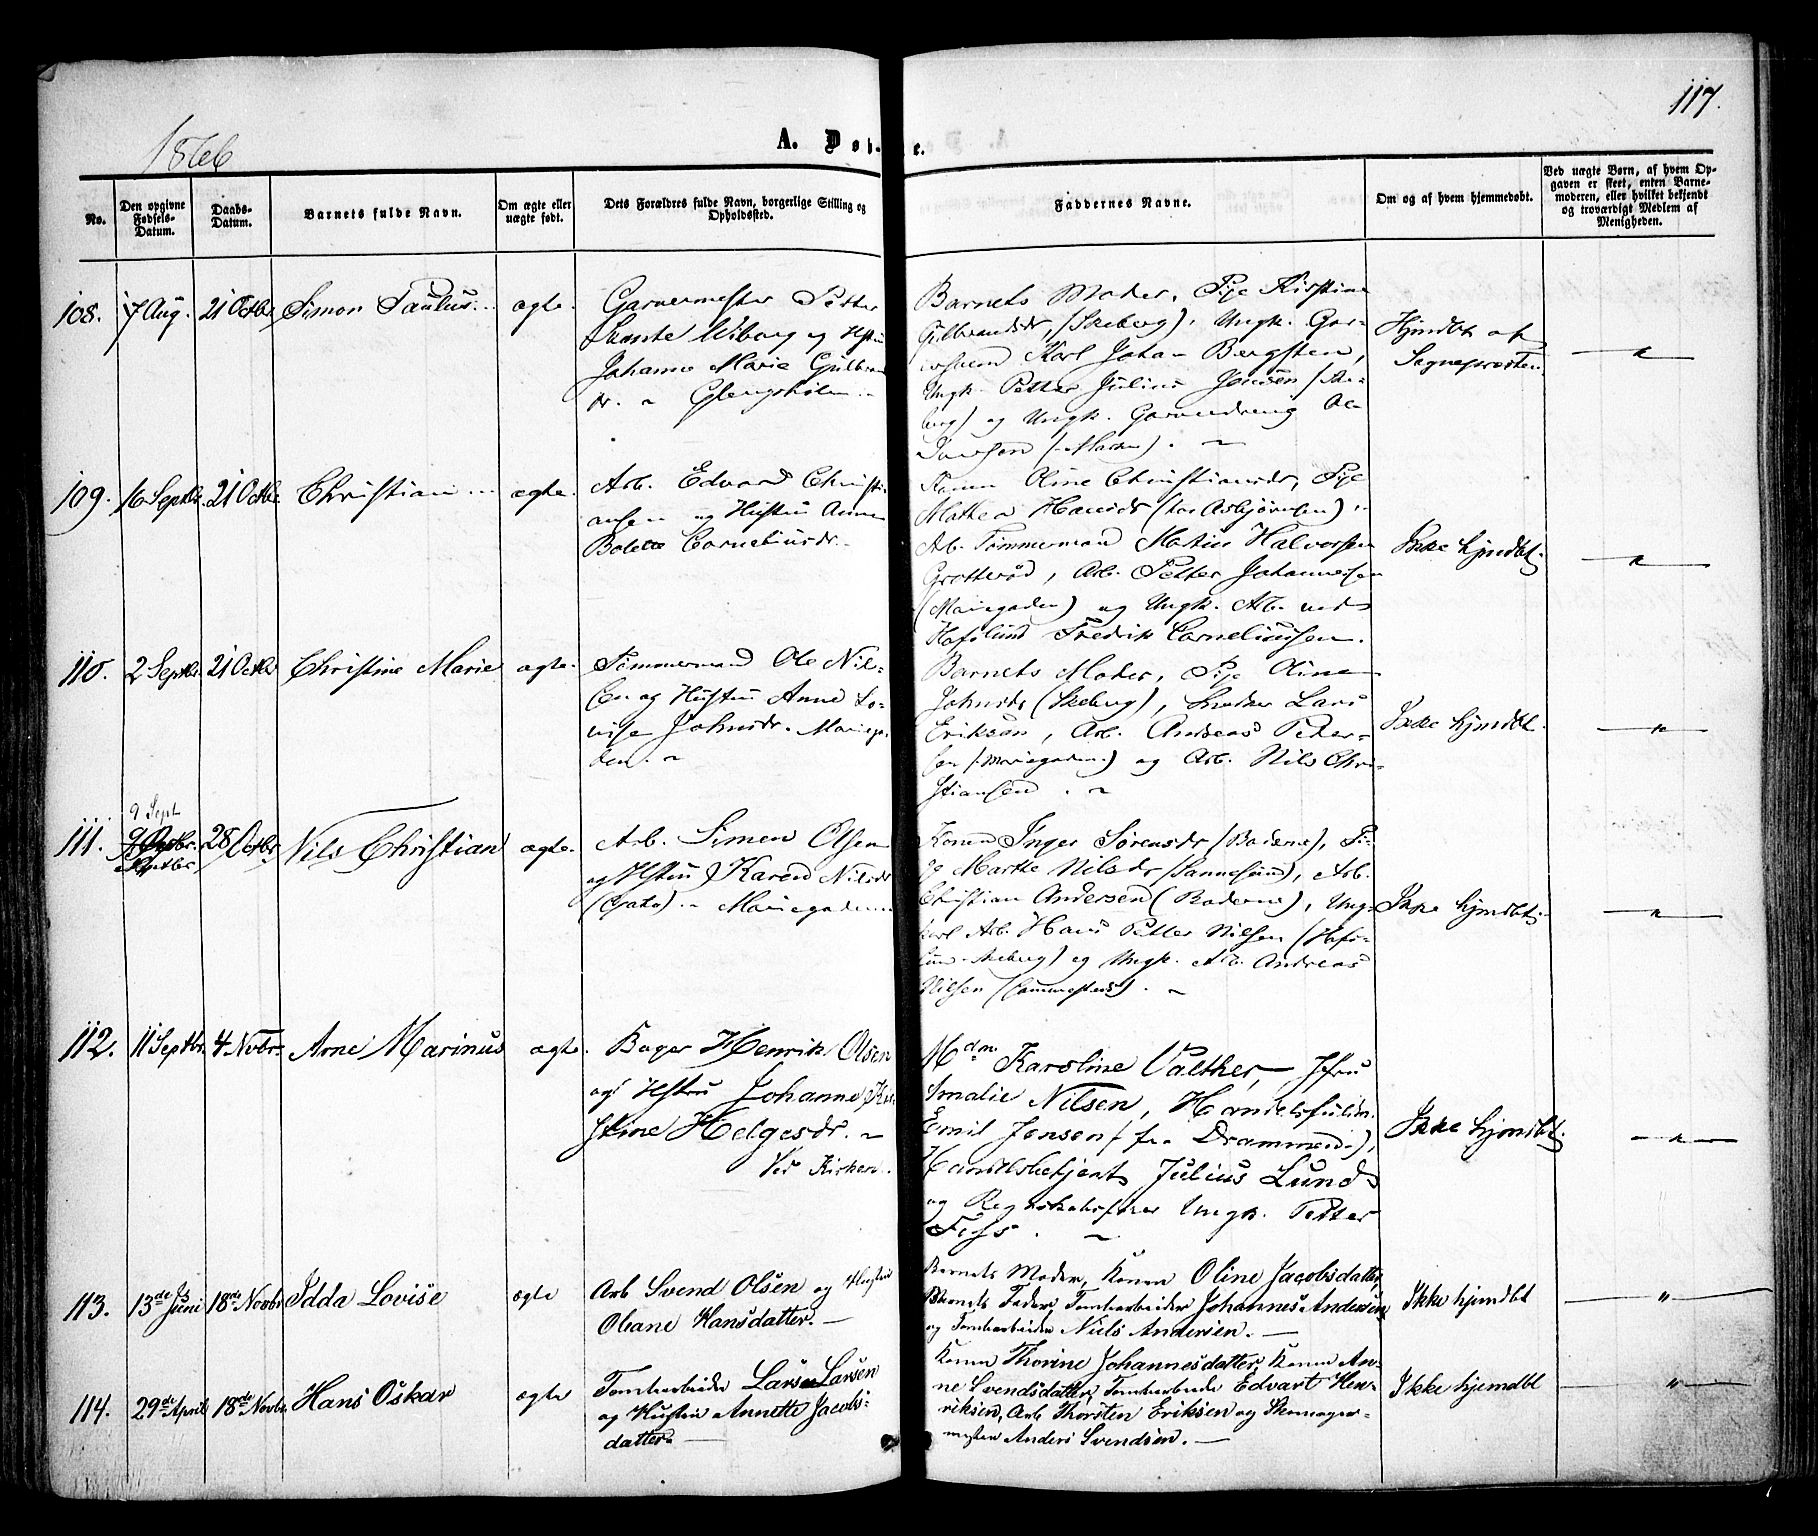 117.
1866
A. Døbte.
No.
Den opgivne Fødsels-Datum.
Daabs-Datum.
Barnets fulde Navn.
Om ægte eller uægte født.
Dets Forældres fulde Navn, borgerlige Stilling og Opholdssted.
Faddernes Navne.
Om og af hvem hjemmedøbt.
Ved uægte Børn, af hvem Opgaven er skeet, enten Barnemoderen, eller hvilket bekjendt og troværdigt Medlem af Menigheden.
108. 17 Aug. 21 Octbr Simon Paulus ægte.
Garvermester Petter
Wiborg og Hstru
Johanne Marie Gulbrands
dr. Glengshølen
Barnets Moder, Pige Kirstine
Gulbrandsdr, (Skeberg), Ungk. Gar-
versvend Karl Johan Bergsten,
Ungk. Petter Julius Jensen
og Ungk.
Hjmdbt af
Sognepresten
109. 16 Septbr. 21 Octbr Christian ægte.
Arb. Edvard Christi-
ansen og Hustru Anne
Bolette Corneliusdr.
Konen Oline Christiansdr, Pige
Mathea Hansdr (hos Asbjørnsen)
Arb. Tømmermand Martin Halvorsen
Grotterød, Arb. Petter Johannesen
(Mariegaden) og Ungk. Arb. ved
Hafslund Fredrik Corneliussen.
Ikke hjmdbt.
110. 2 Septbr. 21 Octbr Christine Marie ægte.
Tømmermand Ole Nil-
sen og Hustru Anne Lo-
vise Johnsdr. Mariega-
den.
Barnets Moder, Pige Oline
Johnsdr (Skeberg), Snedker Lars
Eriksen, Arb. Andreas Peter-
sen (Mariegaden) og Arb. Nils Chri-
stiansen.
Ikke hjmdbt.
111. 9 Sept
Septbr 28 Octbr Nils Christian ægte.
Arb. Simen Olsen
og Hstru Karen Nilsdr
Mariegaden
Konen Inger Sørensdr (Boderne), Pi-
ge Marthe Nilsdr (Sannesund), Arb.
Christian Andersen (Boderne), Ung-
karl Arb. Hans Petter Nilsen (Hafs-
lund Skeberg) og Ungk. Arb. Andreas
Nilsen
Ikke hjmdbt.
112. 11 Septbr. 4 Novbr Arne Marinus ægte.
Bager Henrik Olsen
og Hstru Johanne Kir-
stine Helgesdr.
Ved Kirken.
Mdm Karoline Walther, Jfru
Amalie Nilsen, Handelsfuldm.
Emil Jensen (fra Drammen),
Handelsbetjent Julius Lund
og Regnskabsfører Ungk. Petter
Foss.
Ikke hjmdbt.
113. 13de Juni 18de Novbr Idda Lovise ægte
Arb Svend Olsen og Hustru
Oleane Hansdatter.
Barnets Moder, Konen Oline Jacobsdatter,
Barnets Fader, Tomtearbeider Johannes Andersen
og Tomtearbeider Niels Andersen.
Ikke hjemdbt
114. 29de April 18de Novbr. Hans Oskar ægte
Tomtearbeider Lars Larsen
og Hustru Annette Jacobs-
datter
Konen Thorine Johannesdatter, Konen An-
ne Svendsdatter, Tomtearbeider Edvart Hen-
riksen, Arb Thorsten Eriksen og Skomager-
mester Anders Svendsen.
Ikke hjemdbt